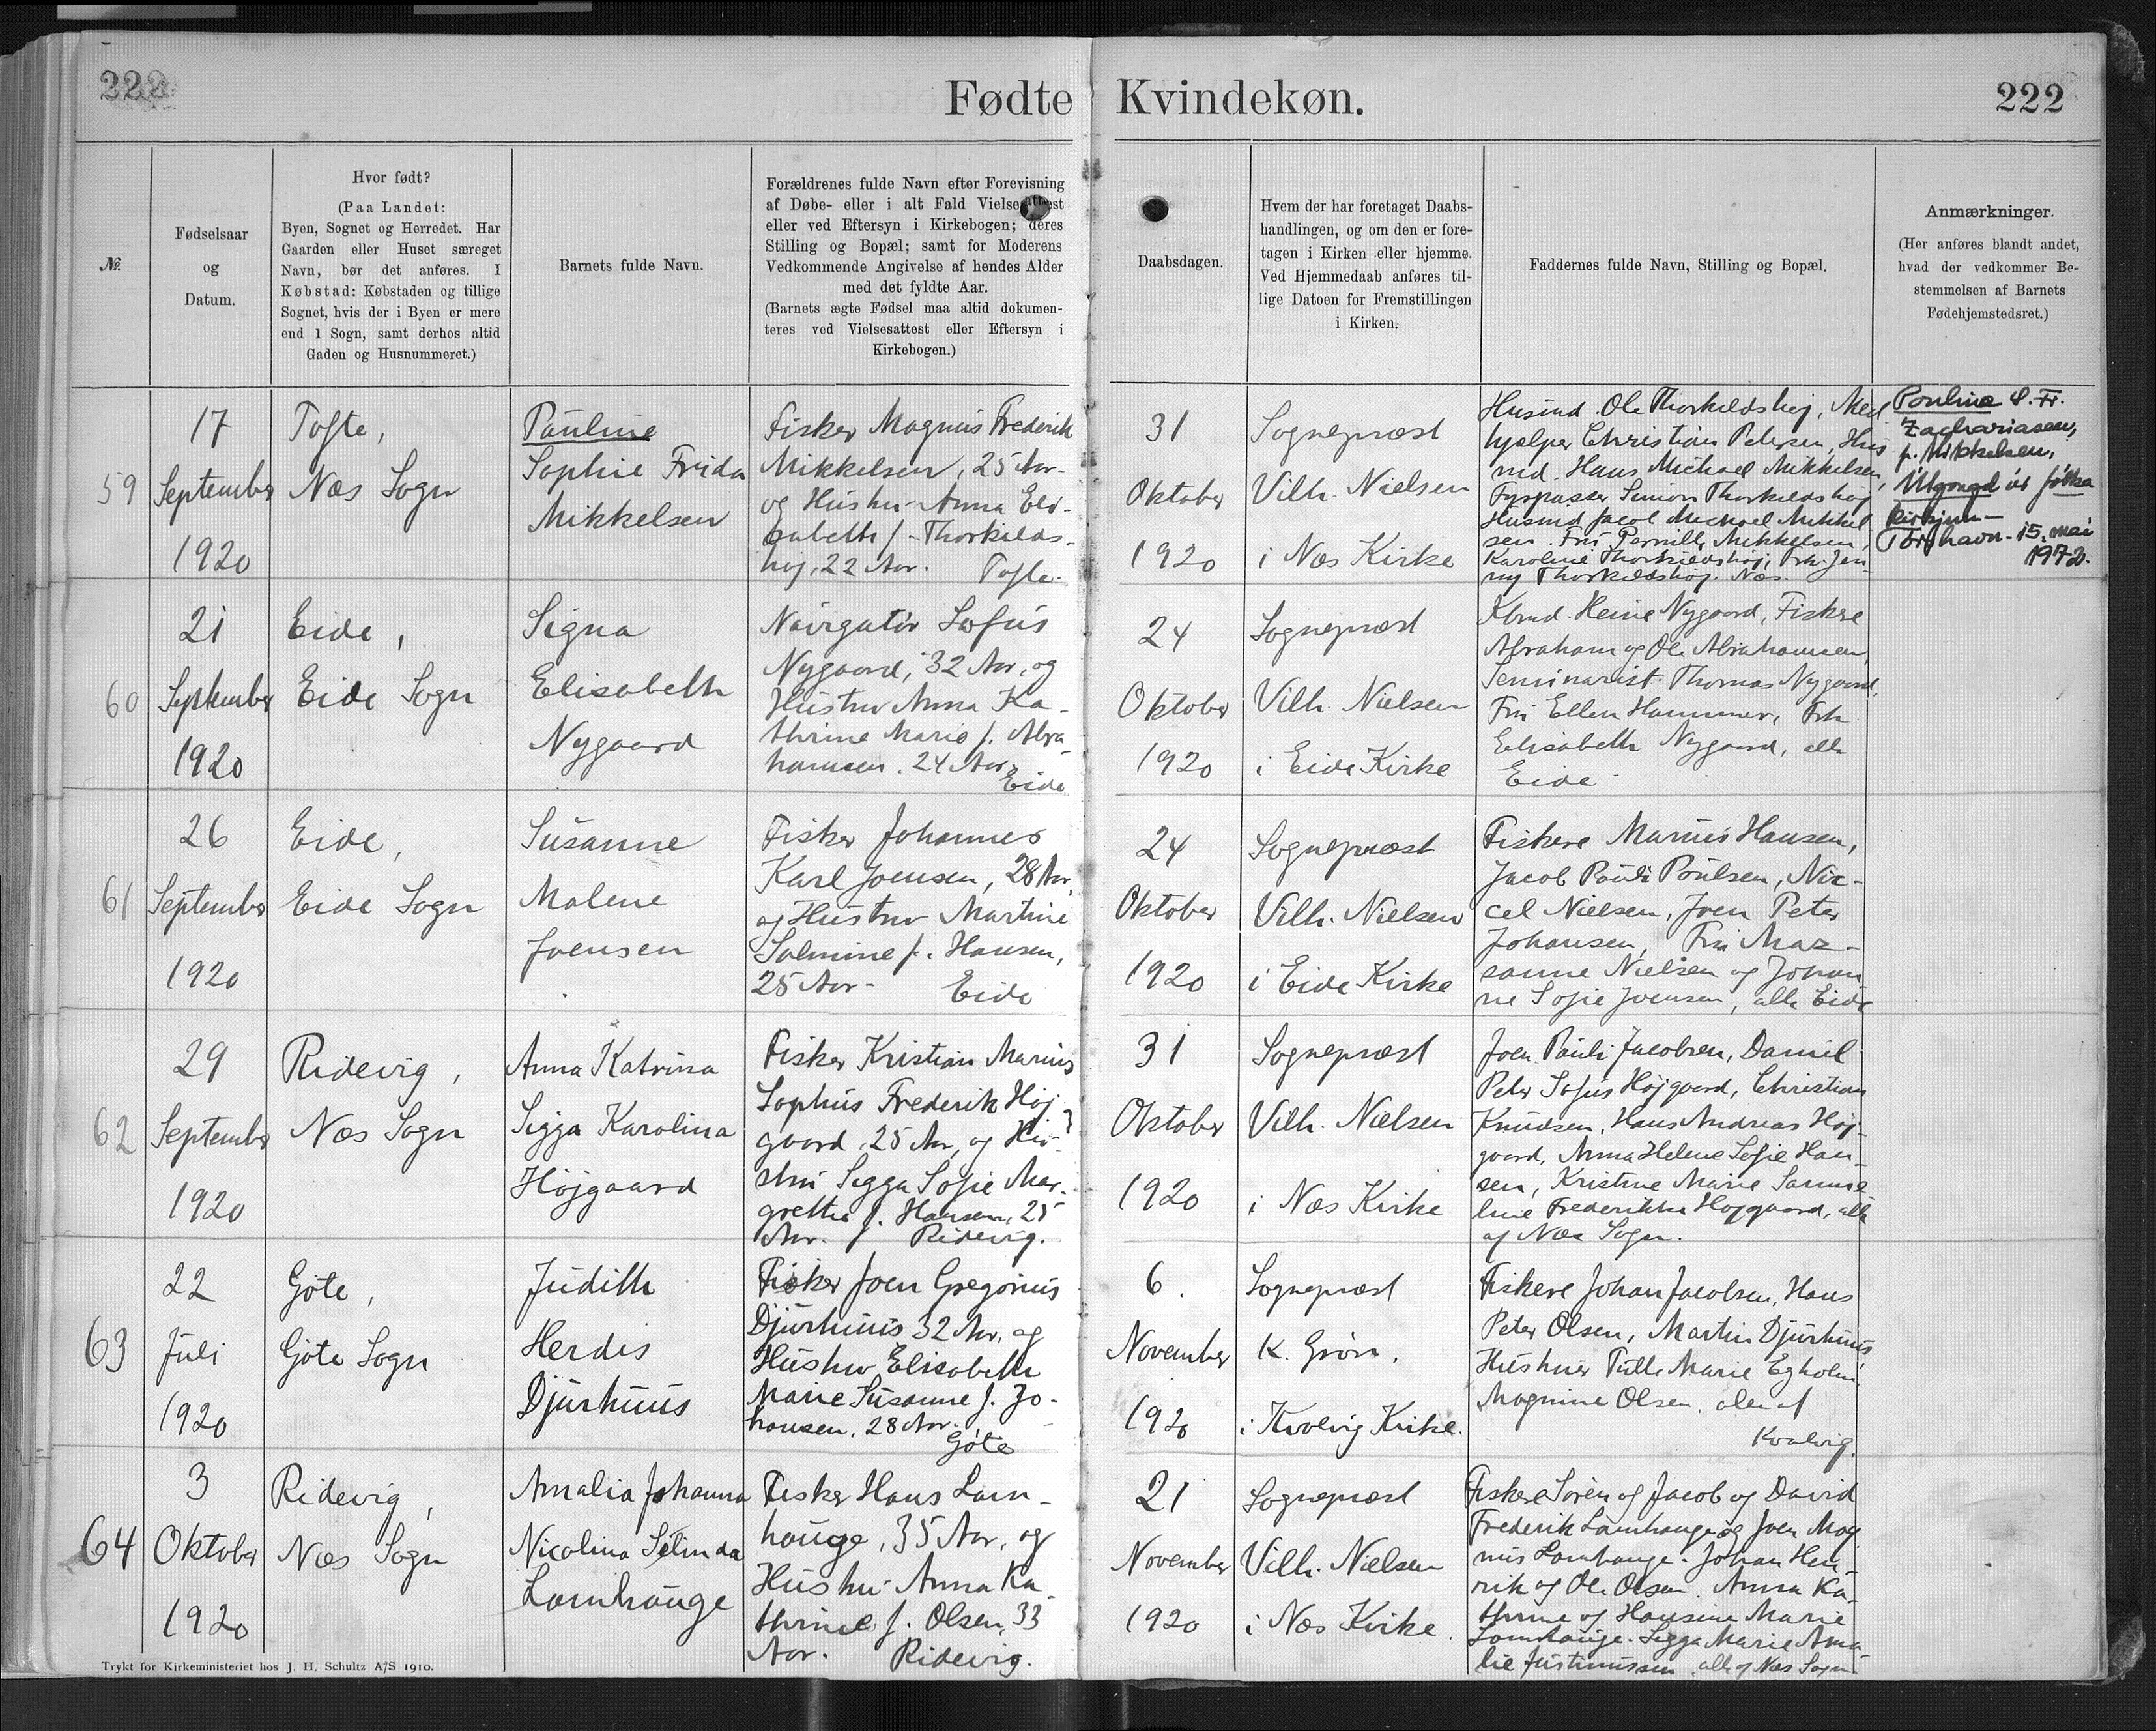 222
Fødte Kvindekøn.
222
№
Fødselsaar
og
Datum.
Hvor født?
(Paa Landet:
Byen, Sognet og Herredet. Har
Gaarden eller Huset særeget
Navn, bør det anføres. I
Købstad: Købstaden og tillige
Sognet, hvis der i Byen er mere
end 1 Sogn, samt derhos altid
Gaden og Husnummeret.)
Barnets fulde Navn.
Forældrenes fulde Navn efter Forevisning
af Døbe- eller i alt Fald Vielsesattest
eller ved Eftersyn i Kirkebogen; deres
Stilling og Bopæl; samt for Moderens
Vedkommende Angivelse af hendes Alder
med det fyldte Aar.
(Barnets ægte Fødsel maa altid dokumen-
teres ved Vielsesattest eller Eftersyn i
Kirkebogen.)
Daabsdagen.
Hvem der har foretaget Daabs-
handlingen, og om den er fore-
tagen i Kirken eller hjemme.
Ved Hjemmedaab anføres til-
lige Datoen for Fremstillingen
i Kirken.
Faddernes fulde Navn, Stilling og Bopæl.
Anmærkninger.
(Her anføres blandt andet,
hvad der vedkommer Be-
stemmelsen af Barnets
Fødehjemstedsret.)
59
17
September
1920
Tofte,
Næs Sogn
Pauline
Sophie Frida
Mikkelsen
Fisker Magnus Frederik
Mikkelsen, 25 Aar
og Hustru Anna Eli-
sabeth f. Thorkilds-
høj, 22 Aar. Tofte.
31
Oktober
1920
Sognepræst
Vilh. Nielsen
i Næs Kirke
Husmd. Ole Thorkildshøj, Med
hjælper Christian Petersen, Hus
md. Hans Michael Mikkelsen,
Fyrpasser Simon Thorkildshøj
Husmd Jacob Michael Mikkel
sen. Fru Pernille Mikkelsen,
Karoline Thorkildshøj, Frk. Jen
ny Thorkildshøj. Næs.
Pouline S. Fr.
Zachariasen,
f. Mikkelsen,
Útgongd úr fólka
kirkjuni
Tórshavn - 15. mai
1972.
60
21
September
1920
Eide,
Eide Sogn
Signa
Elisabeth
Nygaard
Navigatør Sofus
Nygaard, 32 Aar, og
Hustru Anna Ka-
thrine Marie f. Abra
hamsen. 24 Aar.
Eide
24
Oktober
1920
Sognepræst
Vilh. Nielsen
i Eide Kirke
Kbmd. Heine Nygaard, Fiskere
Abraham og Ole Abrahamsen,
Seminarist Thomas Nygaard,
Fru Ellen Hammer, Frk.
Elisabeth Nygaard, alle
Eide
61
26
September
1920
Eide,
Eide Sogn
Susanne
Malene
Joensen
Fisker Johannes
Karl Joensen, 28 Aar,
og Hustru Martine
Salmine f. Hansen,
25 Aar - Eide
24
Oktober
1920
Sognepræst
Vilh. Nielsen
i Eide Kirke
Fiskere Marius Hansen,
Jacob Pauli Poulsen, Nic-
cel Nielsen, Joen Peter
Johansen, Fru Mar-
sanne Nielsen og Johan
ne Sofie Joensen, alle Eide
62
29
September
1920
Ridevig,
Næs Sogn
Anna Katrina
Sigga Karolina
Höjgaard
Fisker Kristian Marius
Sophus Frederik Høj-
gaard, 25 Aar, og Hu-
stru Sigga Sofie Mar-
grethe f. Hansen, 25
Aar. Ridevig.
31
Oktober
1920
Sognepræst
Vilh. Nielsen
i Næs Kirke
Joen Pauli Jacobsen, Daniel
Peter Sofus Højgaard, Christian
Knudsen, Hans Andreas Høj-
gaard, Anna Helene Sofie Han-
sen, Kristine Marie Samue
line Frederikke Højgaard, alle
af Næs Sogn.
63
22
Juli
1920
Göte,
Göte Sogn
Judith
Herdis
Djurhuus
Fisker Joen Gregorius
Djurhuus 32 Aar, og
Hustru Elisabeth
Marie Susanne f. Jo-
hansen, 28 Aar.
Göte
6.
November
1920
Sognepræst
K. Grøn,
i Kvalvig Kirke.
Fiskere Johan Jacobsen, Hans
Peter Olsen, Martin Djurhuus
Hustruer Marie Egholm,
Magnine Olsen, alle af
Kvalvig.
64
3
Oktober
1920
Ridevig,
Næs Sogn
Amalia Johanna
Nicolina Selinda
Lamhauge
Fisker Hans Lam-
hauge, 35 Aar, og
Hustru Anna Ka
thrine f. Olsen, 33
Aar. Ridevig.
21
November
1920
Sognepræst
Vilh. Nielsen
i Næs Kirke.
Fiskere Sören og Jacob og David
Frederik Lamhauge og Joen Mag
nus Lamhauge. Johan Hen-
rik og Ole Olsen. Anna Ka-
thrine og Hansine Marie
Lamhauge. Sigga Marie Ama
lie Justinussen, alle af Næs Sogn
Trykt for Kirkeministeriet hos J. H. Schultz A/S 1910.